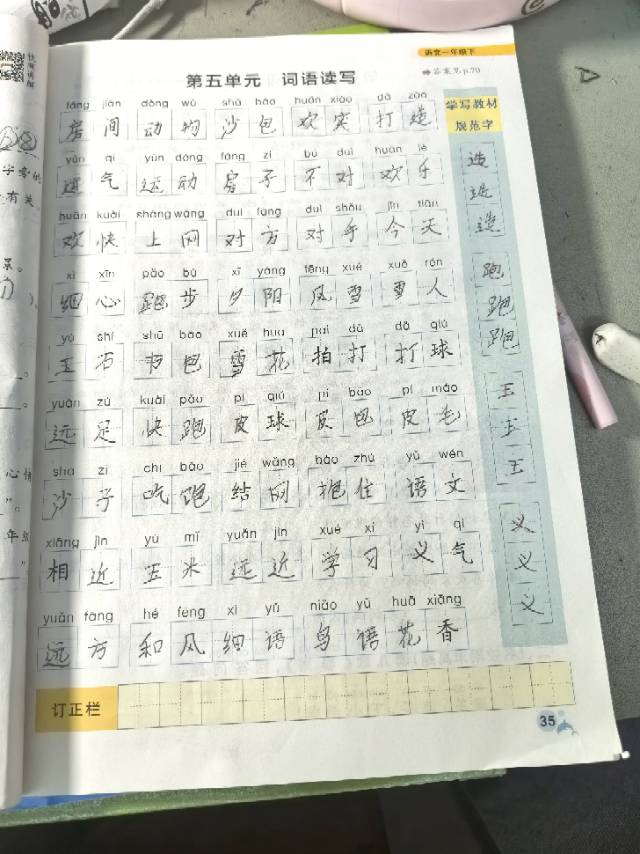 语文一年级下
第五单元 词语读写
答案见p.70
fáng jiān dòng wù shā bāo huān xiào dǎ zào
房间 动物 沙包 欢笑 打造
yùn qi yùn dòng fáng zi bú duì huān lè
运气 运动 房子 不对 欢乐
huān kuài shàng wǎng duì fāng duì shǒu jīn tiān
欢快 上网 对方 对手 今天
xì xīn pǎo bù xī yáng fēng xuě xuě rén
细心 跑步 夕阳 风雪 雪人
yù shí shū bāo xuě huā pāi dǎ dǎ qiú
玉石 书包 雪花 拍打 打球
yuǎn zú kuài pǎo pí qiú pí bāo pí máo
远足 快跑 皮球 皮包 皮毛
shā zi chī bǎo jié wǎng bào zhù yǔ wén
沙子 吃饱 结网 抱住 语文
xiāng jìn yù mǐ yuǎn jìn xué xí yì qì
相近 玉米 远近 学习 义气
yuǎn fāng hé fēng xì yǔ niǎo yǔ huā xiāng
远方 和风细语 鸟语花香
学写教材
规范字
造
造
造
跑
跑
跑
玉
玉
玉
义
义
义
订正栏
35